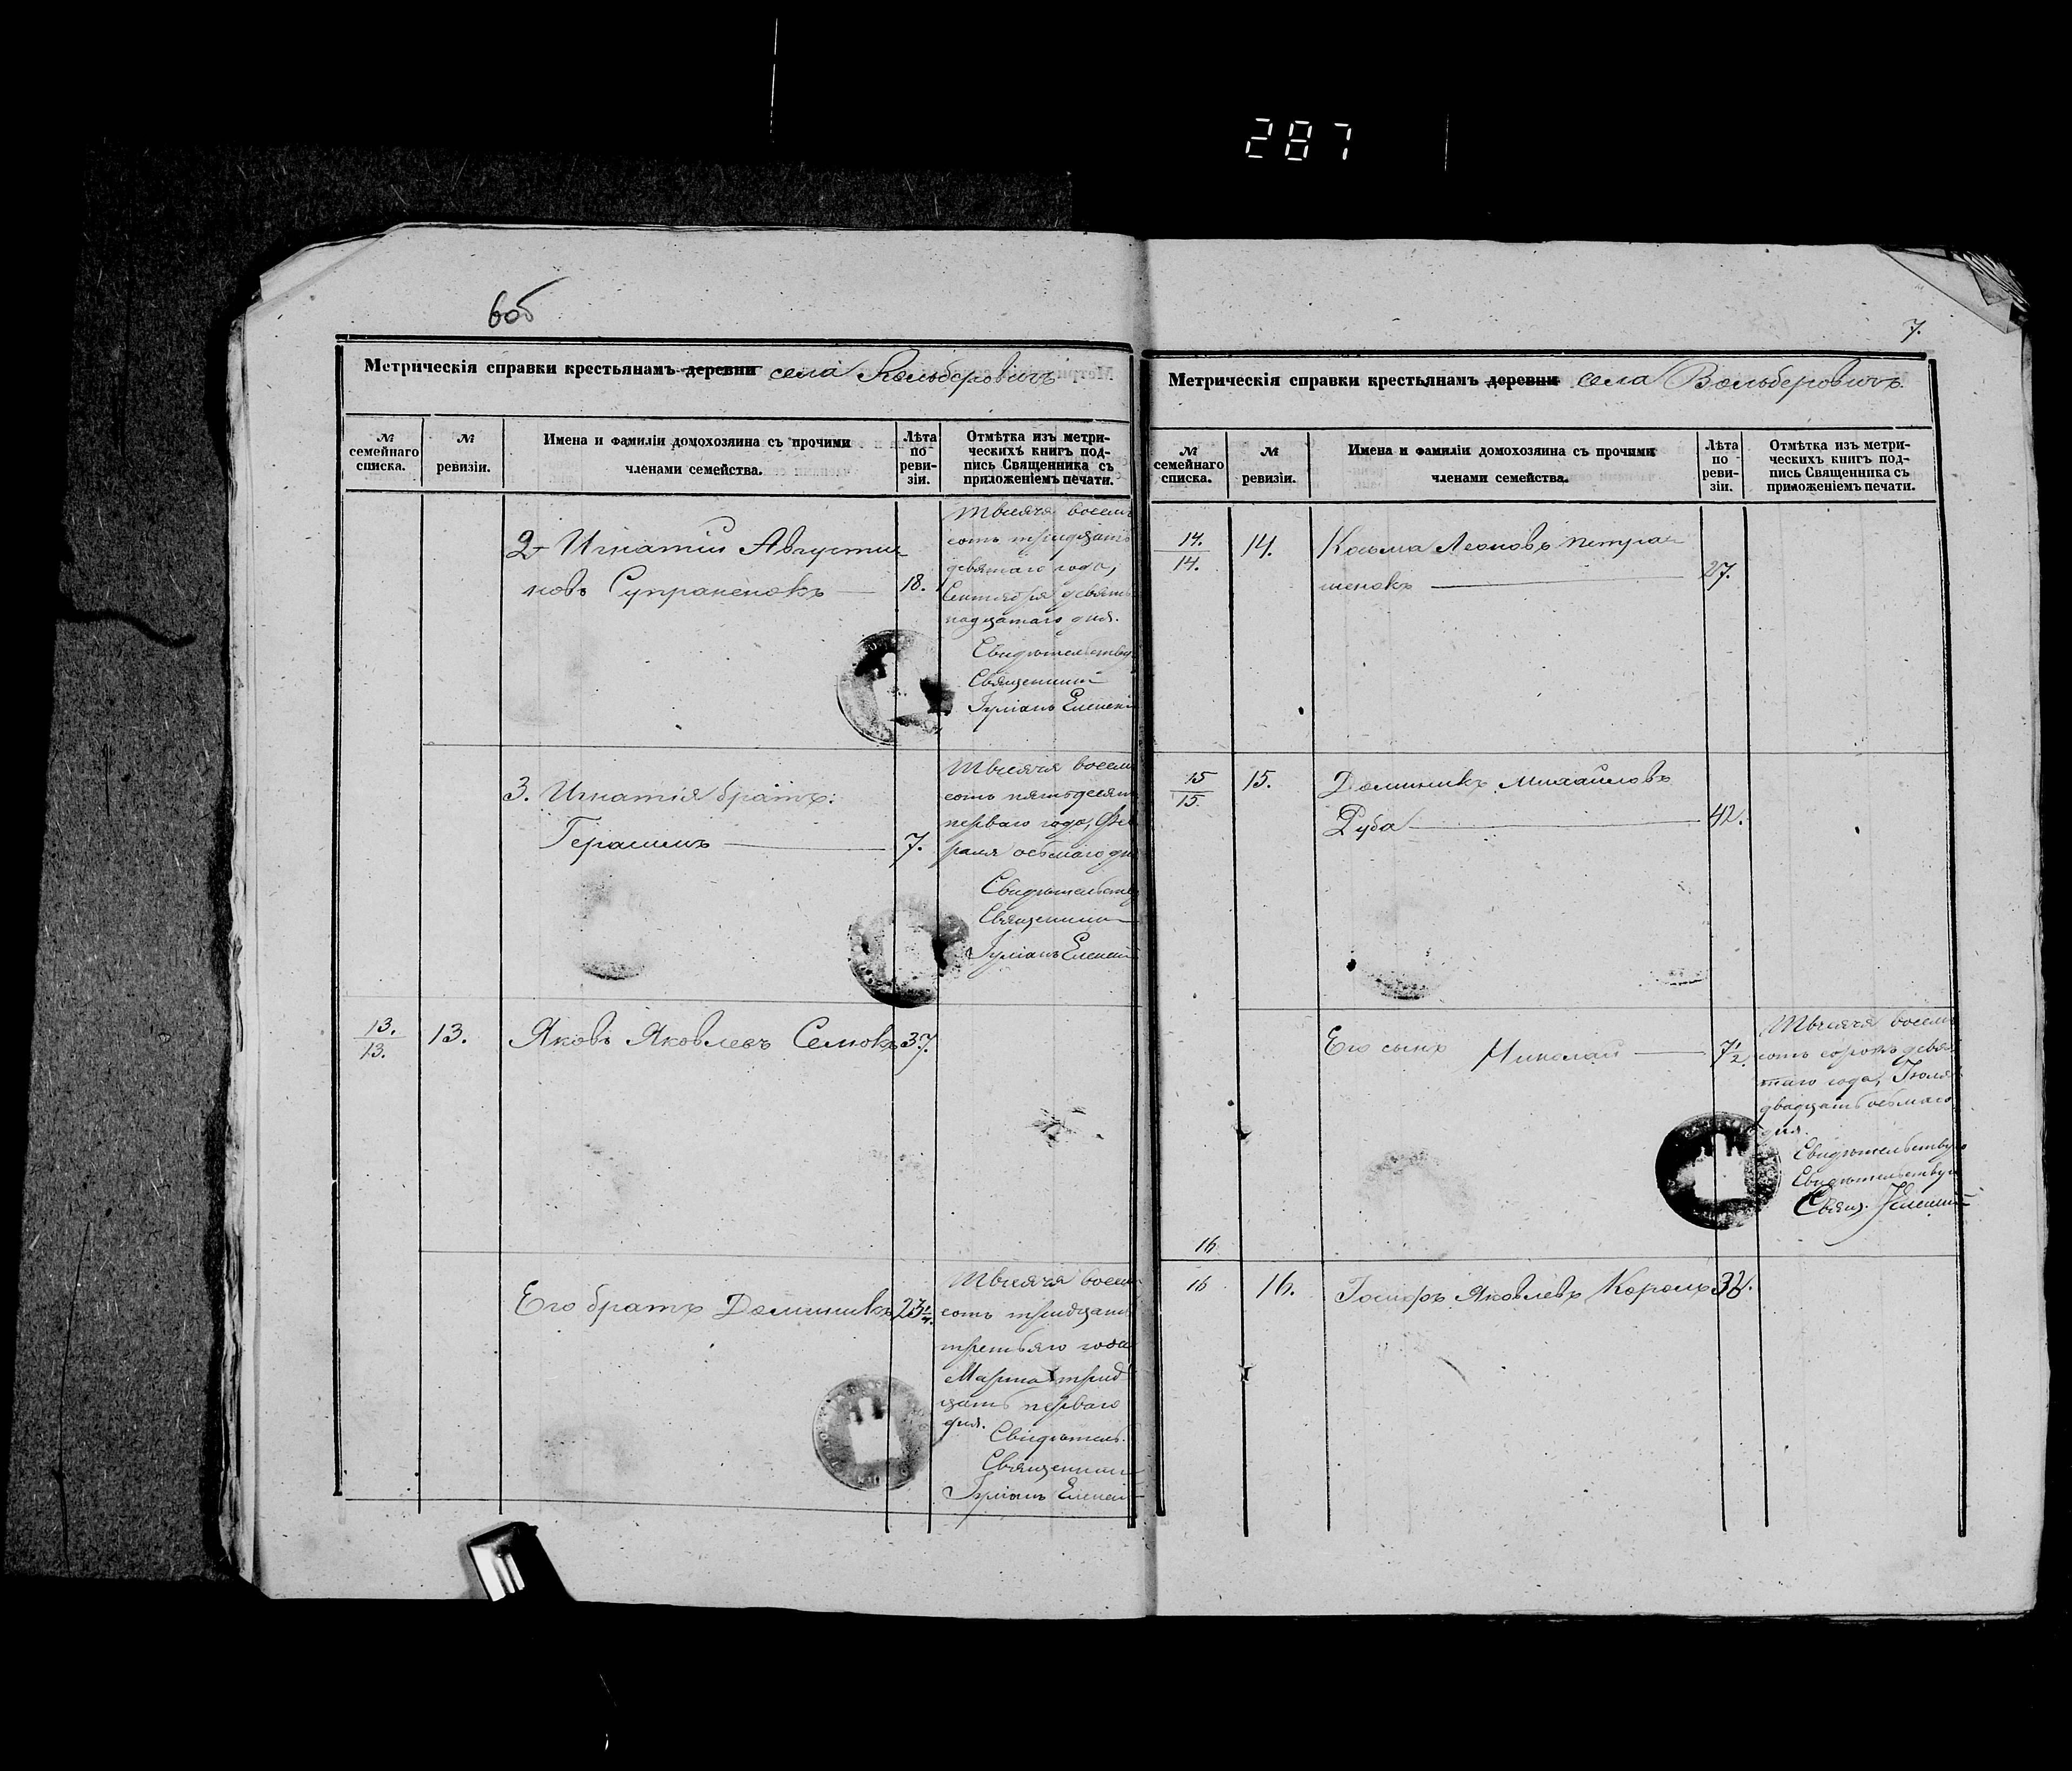 287
6об
Метрическія справки крестьянамъ деревни села Вольберовичъ
№ семейнаго списка.
№ ревизіи.
Имена и фамиліи домохозяина съ прочими членами семейства.
Лѣта по реви-зіи.
Отмѣтка изъ метри-
ческихъ книгъ под-
пись Священника съ
приложеніемъ печати.
2. Игнатій Августи-
новъ Супраненокъ
18.
Тысяча восемь
сотъ тридцать
девятаго года,
Сентября девят-
надцатаго дня.
Свидѣтельству
Священникъ
Іуліанъ
3. Игнатія братъ:
Герасимъ
7.
Тысяча восемь
сотъ пятьдесят
перваго года, Фев
раля осьмаго дня
Свидѣтельству
Священникъ
Іуліанъ
13.
13.
13.
Яковъ Яковлевъ Семокъ 37.
Его братъ Доминикъ 23 1/4.
Тысяча восем
сотъ тридцать
третьяго года
Марта трид
цать перваго
дня.
Свидѣтель.
Священникъ
Іуліанъ
7.
Метрическія справки крестьянамъ деревни села Вольберовичъ
№ семейнаго списка.
№ ревизіи.
Имена и фамиліи домохозяина съ прочими членами семейства.
Лѣта по реви-зіи.
Отмѣтка изъ метри-
ческихъ книгъ под-
пись Священника съ
приложеніемъ печати.
14.
14.
14.
Косьма Леоновъ
27.
15
15.
15.
Доминикъ Михайловъ
Дуба
42.
Его сынъ Николай 7 1/2.
Тысяча восемь
сотъ сорокъ девя
таго года, Іюля
двадцать осьмаго
дня.
Свидѣтельствую
Свидѣтельствую
Свящ.
16
16
16.
Іосифъ Яковлевъ Король 32.